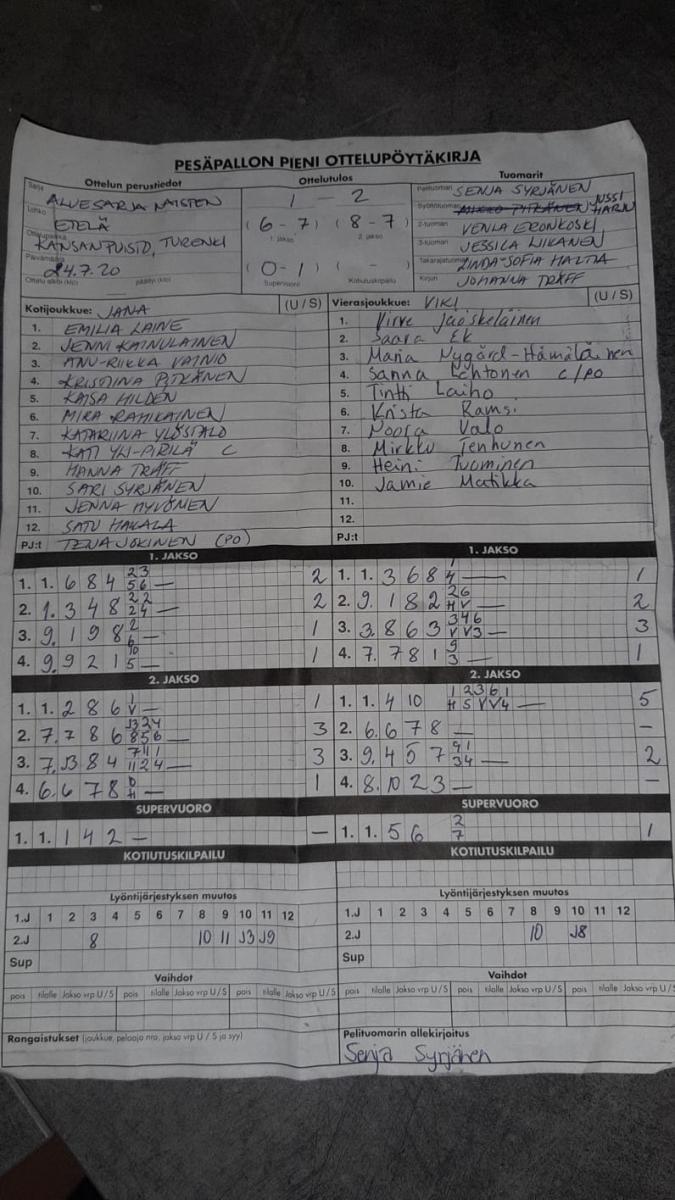 PESÄPALLON PIENI OTTELUPÖYTÄKIRJA
Ottelun perustiedot Ottelutulos Tuomarit
Sarja ALUESARJA NAISTEN 1 - 2 Pelituomari SENJA SYRJÄNEN
Lohko ETELÄ (6 - 7) (8 - 7) Syöttötuomari JUSSI HARJU
1. jakso 2. jakso 2-tuomari VENLA ERONKOSKI
Ottelupaikka KANSANPUISTO, TURENKI 3-tuomari JESSICA LIIKANEN
Päivämäärä 24.7.20 (0 - 1) ( - ) Takarajatuomari LINDA-SOFIA HALTIA
Ottelu alkoi (klo) päättyi (klo) Supervuoro Kotiutuskilpailu Kirjuri JOHANNA TRÄFF
Kotijoukkue: JANA (U / S) Vierasjoukkue: VIKI (U / S)
1. EMILIA LAINE 1. Virve Jääskeläinen
2. JENNI KAINULAINEN 2. Saara Ek
3. ANU-RIIKKA VAINIO 3. Maria Nygård-Hämäläinen
4. KRISTIINA PITKÄNEN 4. Sanna Lehtonen C/PO
5. KAISA HILDEN 5. Tintti Laiho
6. MIRA RAHIKAINEN 6. Krista Ramsi
7. KATARIINA YLÖSTALO 7. Noora Valo
8. KATI YLI-PIRILÄ C 8. Mirkku Tenhunen
9. HANNA TRÄFF 9. Heini Tuominen
10. SARI SYRJÄNEN 10. Jamie Matikka
11. JENNA HYVÖNEN 11.
12. SATU HAKALA 12.
PJ:t TENA JOKINEN (PO) PJ:t
1. JAKSO 1. JAKSO
1. 1. 6 8 4 23 56 — 2 1. 1. 3 6 8 1 4 — 1
2. 1. 3 4 8 22 24 — 2 2. 9. 1 8 2 26 HV — 2
3. 9. 1 9 8 2 6 — 1 3. 3. 8 6 3 346 VV3 — 3
4. 9. 9 2 1 10 5 — 1 4. 7. 7 8 1 9 3 — 1
2. JAKSO 2. JAKSO
1. 1. 2 8 6 1 V — 1 1. 1. 4 10 1 2 3 6 1 H 5 V V 4 — 5
2. 7. 7 8 6 J3 2 4 8 5 6 — 3 2. 6. 6 7 8 — –
3. 7. J3 8 4 7 11 1 11 2 4 — 3 3. 9. 4 5 7 9 1 3 4 — 2
4. 6. 6 7 8 — 1 4. 8. 10 2 3 — –
SUPERVUORO SUPERVUORO
1. 1. 1 4 2 — – 1. 1. 5 6 2 7 1
KOTIUTUSKILPAILU KOTIUTUSKILPAILU
Lyöntijärjestyksen muutos Lyöntijärjestyksen muutos
1.J 1 2 3 4 5 6 7 8 9 10 11 12 1.J 1 2 3 4 5 6 7 8 9 10 11 12
2.J 8 10 11 J3 J9 2.J 10 J8
Sup Sup
Vaihdot Vaihdot
pois tilalle Jakso vrp U / S pois tilalle Jakso vrp U / S pois tilalle Jakso vrp U / S pois tilalle Jakso vrp U / S pois tilalle Jakso vrp U / S pois tilalle Jakso vrp U / S
Rangaistukset (joukkue, pelaaja nro, jakso vrp U / S ja syy) Pelituomarin allekirjoitus
Senja Syrjänen